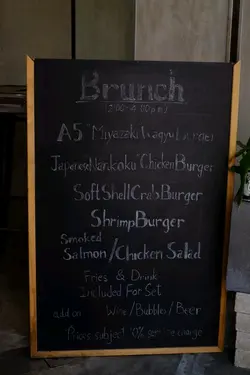 Brunch
A5 "Miyazaki Wagyu
Japanese Nankoku" Chicken Burger
Soft Shell Crab Burger
Shrimp Burger
Smoked
Salmon/Chicken Salad
Fries & Drink
Included For Set
add on Wine/Bubble/Beer
Prices subject 10% service charge